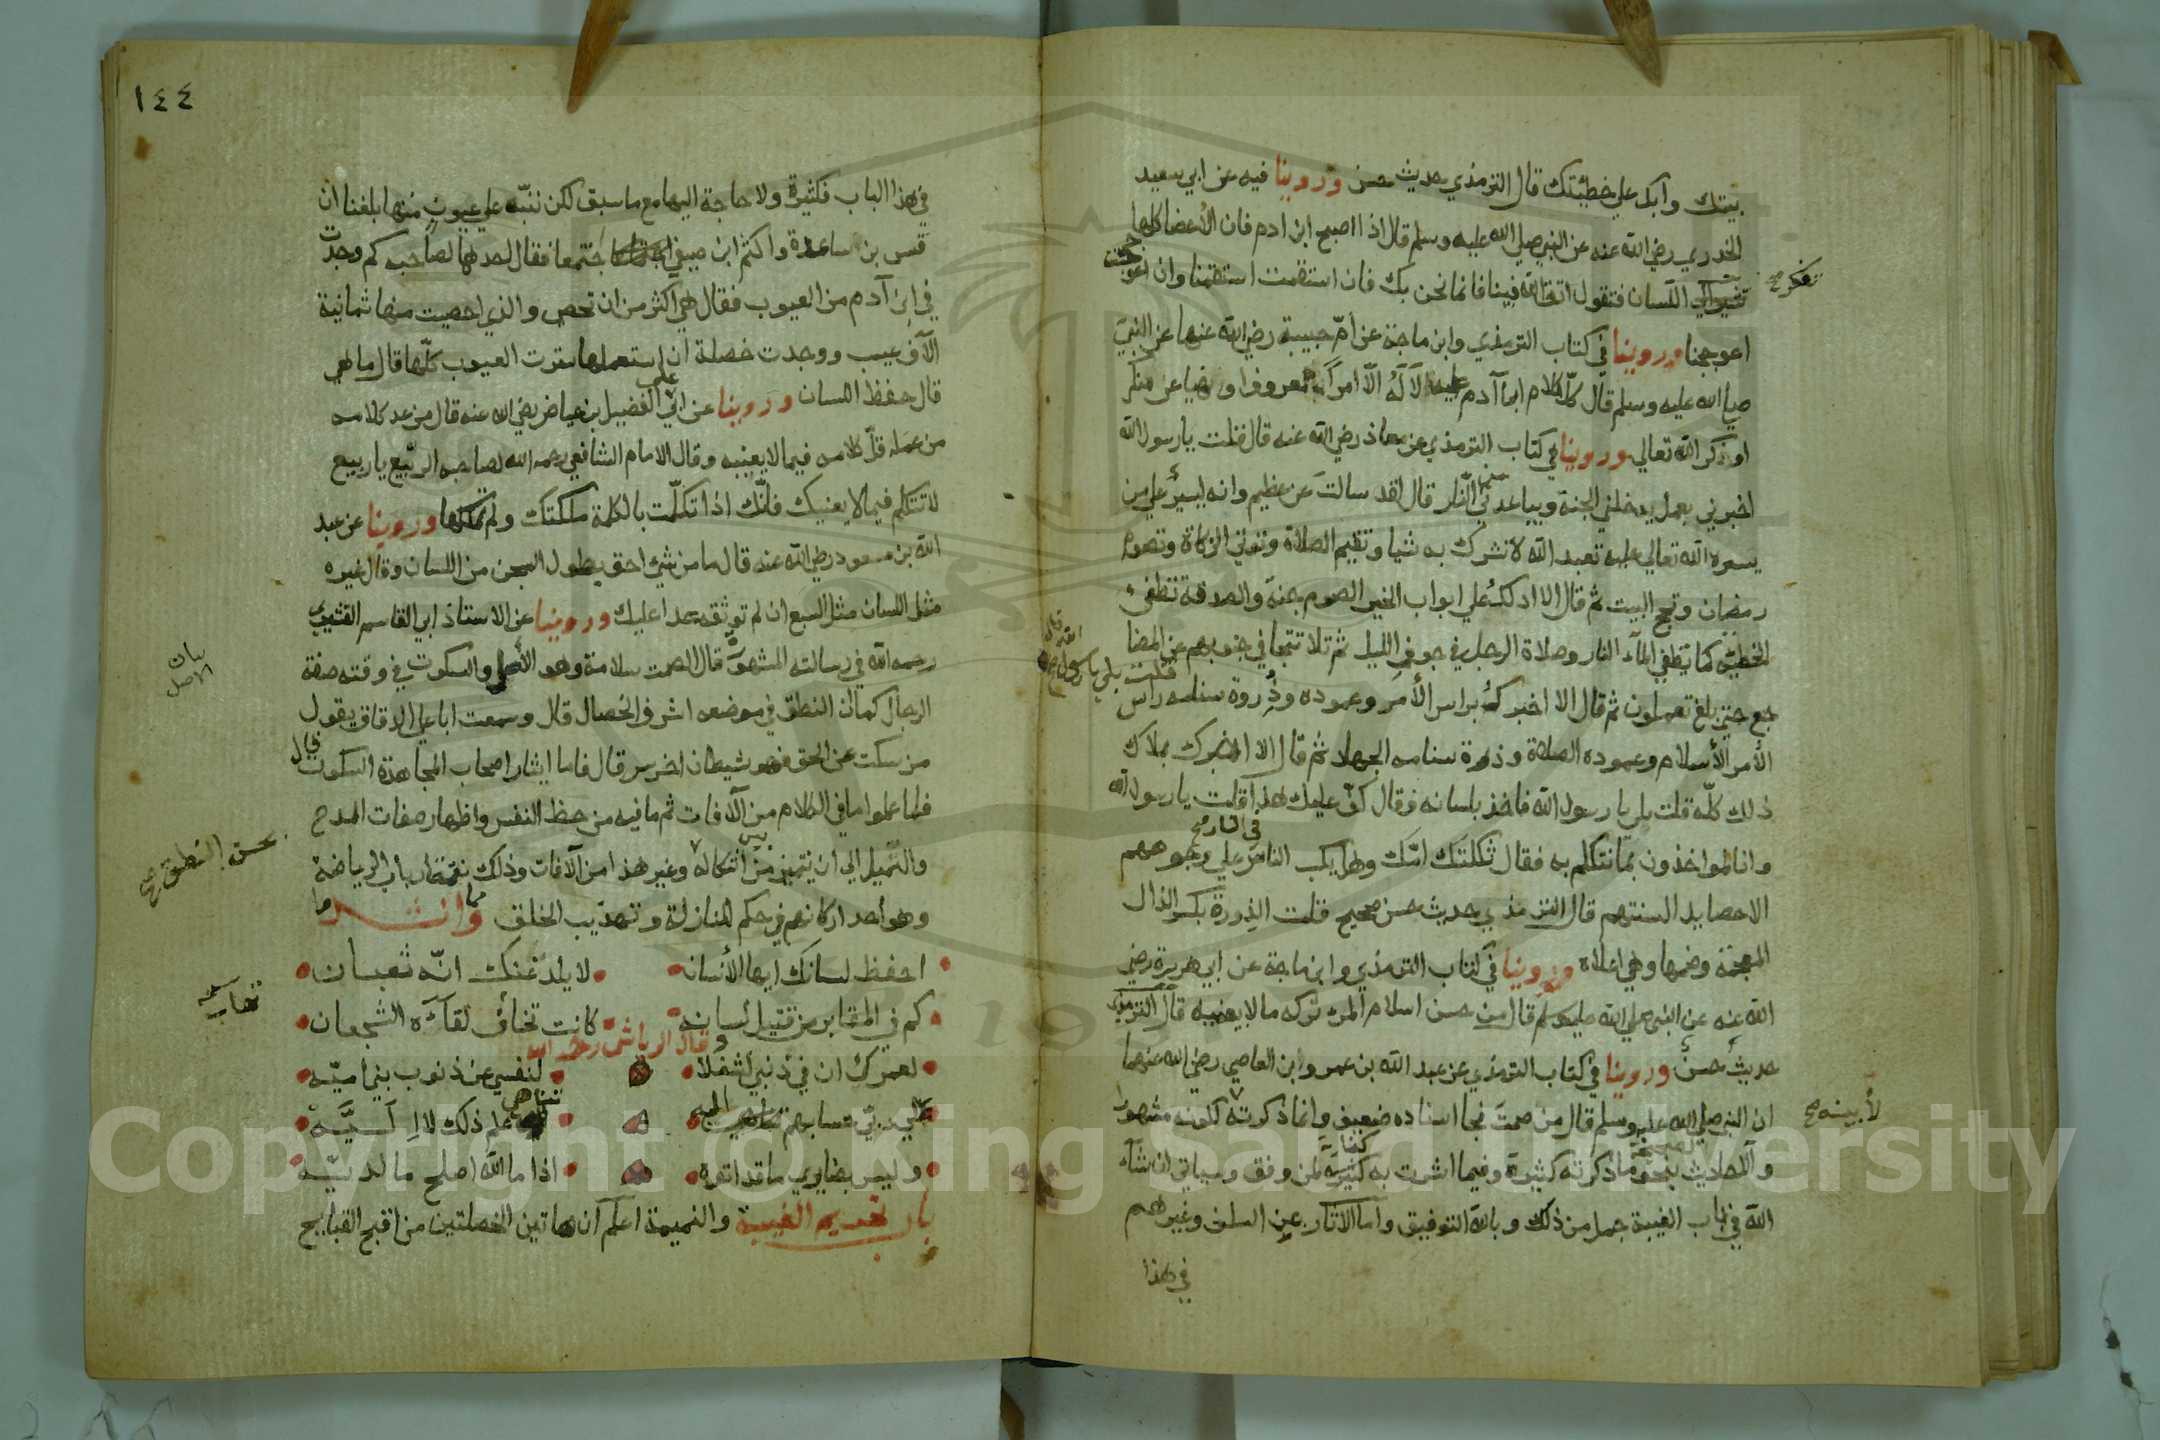 بيتك وابك علي خطيئتك قال الترمذي حديث حسن وروينا فيه عن ابي سعيد
الخدري رضي الله عنه عن النبي صلي الله عليه وسلم قال اذا اصبح ابن ادم فان الأعضا كلها
اللسان فتقول اتق الله فينا فانما نحن بك فان استقمت استقمنا وان اعوججت
اعوججنا وروينا في كتاب الترمذي وابن ماجة عن امّ حبيبة رضي الله عنها عن النبيّ
صلي الله عليه وسلم قال كلّ كلام ابن آدم عليه لا لَهُ الّا امراً بمعروف او نهيا عن منكر
او ذكر الله تعالي وروينا في كتاب الترمذي عن معاذ رضي الله عنه قال قلت يا رسول الله
اخبرني بعمل يدخلني الجنة ويباعدني من النار قال لقد سالتَ عن عظيم وانه ليسيرٌ علي من
يسره الله تعالي عليه تعبد الله لا تشرك به شيا وتقيم الصلاة وتوتي الزكاة وتصوم
رمضان وتحج البيت ثم قال الا ادلك علي ابواب الخير الصوم جنة والصدقة تطفيء
الخطيئة كما يطفي المآء النار وصلاة الرجل في جوف الليل ثم تلا تتجافي جنوبهم عن المضا
جع حتي بلغ تعملون ثم قال الا اخبرك براس الأمر وعموده وذِروة سنامه راس
قلت بلي يا رسول الله قال
الأمر الأسلام وعموده الصلاة وذروة سنامه الجهاد ثم قال الا اخبرك بملاك
ذلك كلّه قلت بلي يا رسول الله فاخذ بلسانه فقال كفّ عليك هذا قلت يا رسول الله
وانا لمواخذون بما نتكلم به فقال ثكلتك امّك وهل يكب الناس في النار علي وجوههم
الا حصايد السنتهم قال الترمذي حديث حسن صحيح قلت الذروة بكسر الذال
المعجمة وضمها وهي اعلاه وروينا في كتاب الترمذي وابن ماجة عن ابي هريرة رضي
الله عنه عن النبي صلي الله عليه وسلم قال من حسن اسلام المرء تركه ما لا يعنيه قال الترمذي
حديث حسن وروينا في كتاب الترمذي عن عبد الله بن عمرو ابن العاصي رضي الله عنهما
ان النبي صلي الله عليه وسلم قال من صمت نجا اسناده ضعيف وانما ذكرته لكونه مشهورا
لأبينه صح
والأحاديث الصحيحة بنحو ما ذكرته كثيرة وفيما اشرت به كفاية لمن وفق وسياتي ان شآء
الله في باب الغيبة جمل من ذلك وبالله التوفيق وأما الآثار عن السلف وغيرهم
في هذا
١٤٤
في هذا الباب فكثيرة ولا حاجة اليها مع ما سبق لكن ننبّه علي عيوب منها بلغنا ان
قس بن ساعدة واكثم ابن صيفي اجتمعا فقال احدهما لصاحبه كم وجدت
في ابن آدم من العيوب فقال هي اكثر من ان تحصي والذي احصيت منها ثمانية
الآف عيب ووجدت خصلة ان استعملها سترت العيوب كلّها قال ما هي
قال حفظ اللسان وروينا عن ابي علي الفضيل بن عياض رضي الله عنه قال من عد كلامه
من عمله قلّ كلامه فيما لا يعنيه وقال الامام الشافعي رحمه الله لصاحبه الربيع يا ربيع
لا تتكلم فيما لا يعنيك فانّك اذا تكلّمت بالكلمة ملكتك ولم تملكها وروينا عن عبد
الله بن مسعود رضي الله عنه قال ما من شيء احق بطول السجن من اللسان وقال غيره
مثل اللسان مثل السبع ان لم توثقه عدا عليك وروينا عن الاستاذ ابي القاسم القشيري
رحمه الله في رسالته المشهورة قال الصمت سلامة وهو الأصل والسكوت في وقته صفة
الرجال كما ان النطق في موضعه اشرف الخصال قال وسمعت ابا علي الدقاق يقول
من سكت عن الحق فهو شيطان اخرس قال فاما ايثار اصحاب المجاهدة السكوت
فلما علموا ما في الكلام من الآفات ثم ما فيه من حظ النفس واظهار صفات المدح
والميل الي ان يتميز من بين اشكاله وغير هذا من الآفات وذلك نعت ارباب الرياضة
بحسن النطق صح
وهو احد اركانهم في حكم المنازلة وتهذيب الخلق ومما انشدوا
احفظ لسانك ايها الأنسان لا يلدغنك انّه ثعبان
كم في المقابر من قتيل لسانه كانت تخاف لقاءَه الشجعان
وقال الرياشي رحمه الله
لعمرك ان في ذنبي لشغلا لنفسي عن ذنوب بني اميّه
علي ربّي حسابهم اليه تناهي علم ذلك لا اليّه
وليس بضايري ما قد اتوه اذا ما الله اصلح ما لديّه
باب تحريم الغيبة والنميمة اعلم ان هاتين الخصلتين من اقبح القبايح
Copyright © King Saud University